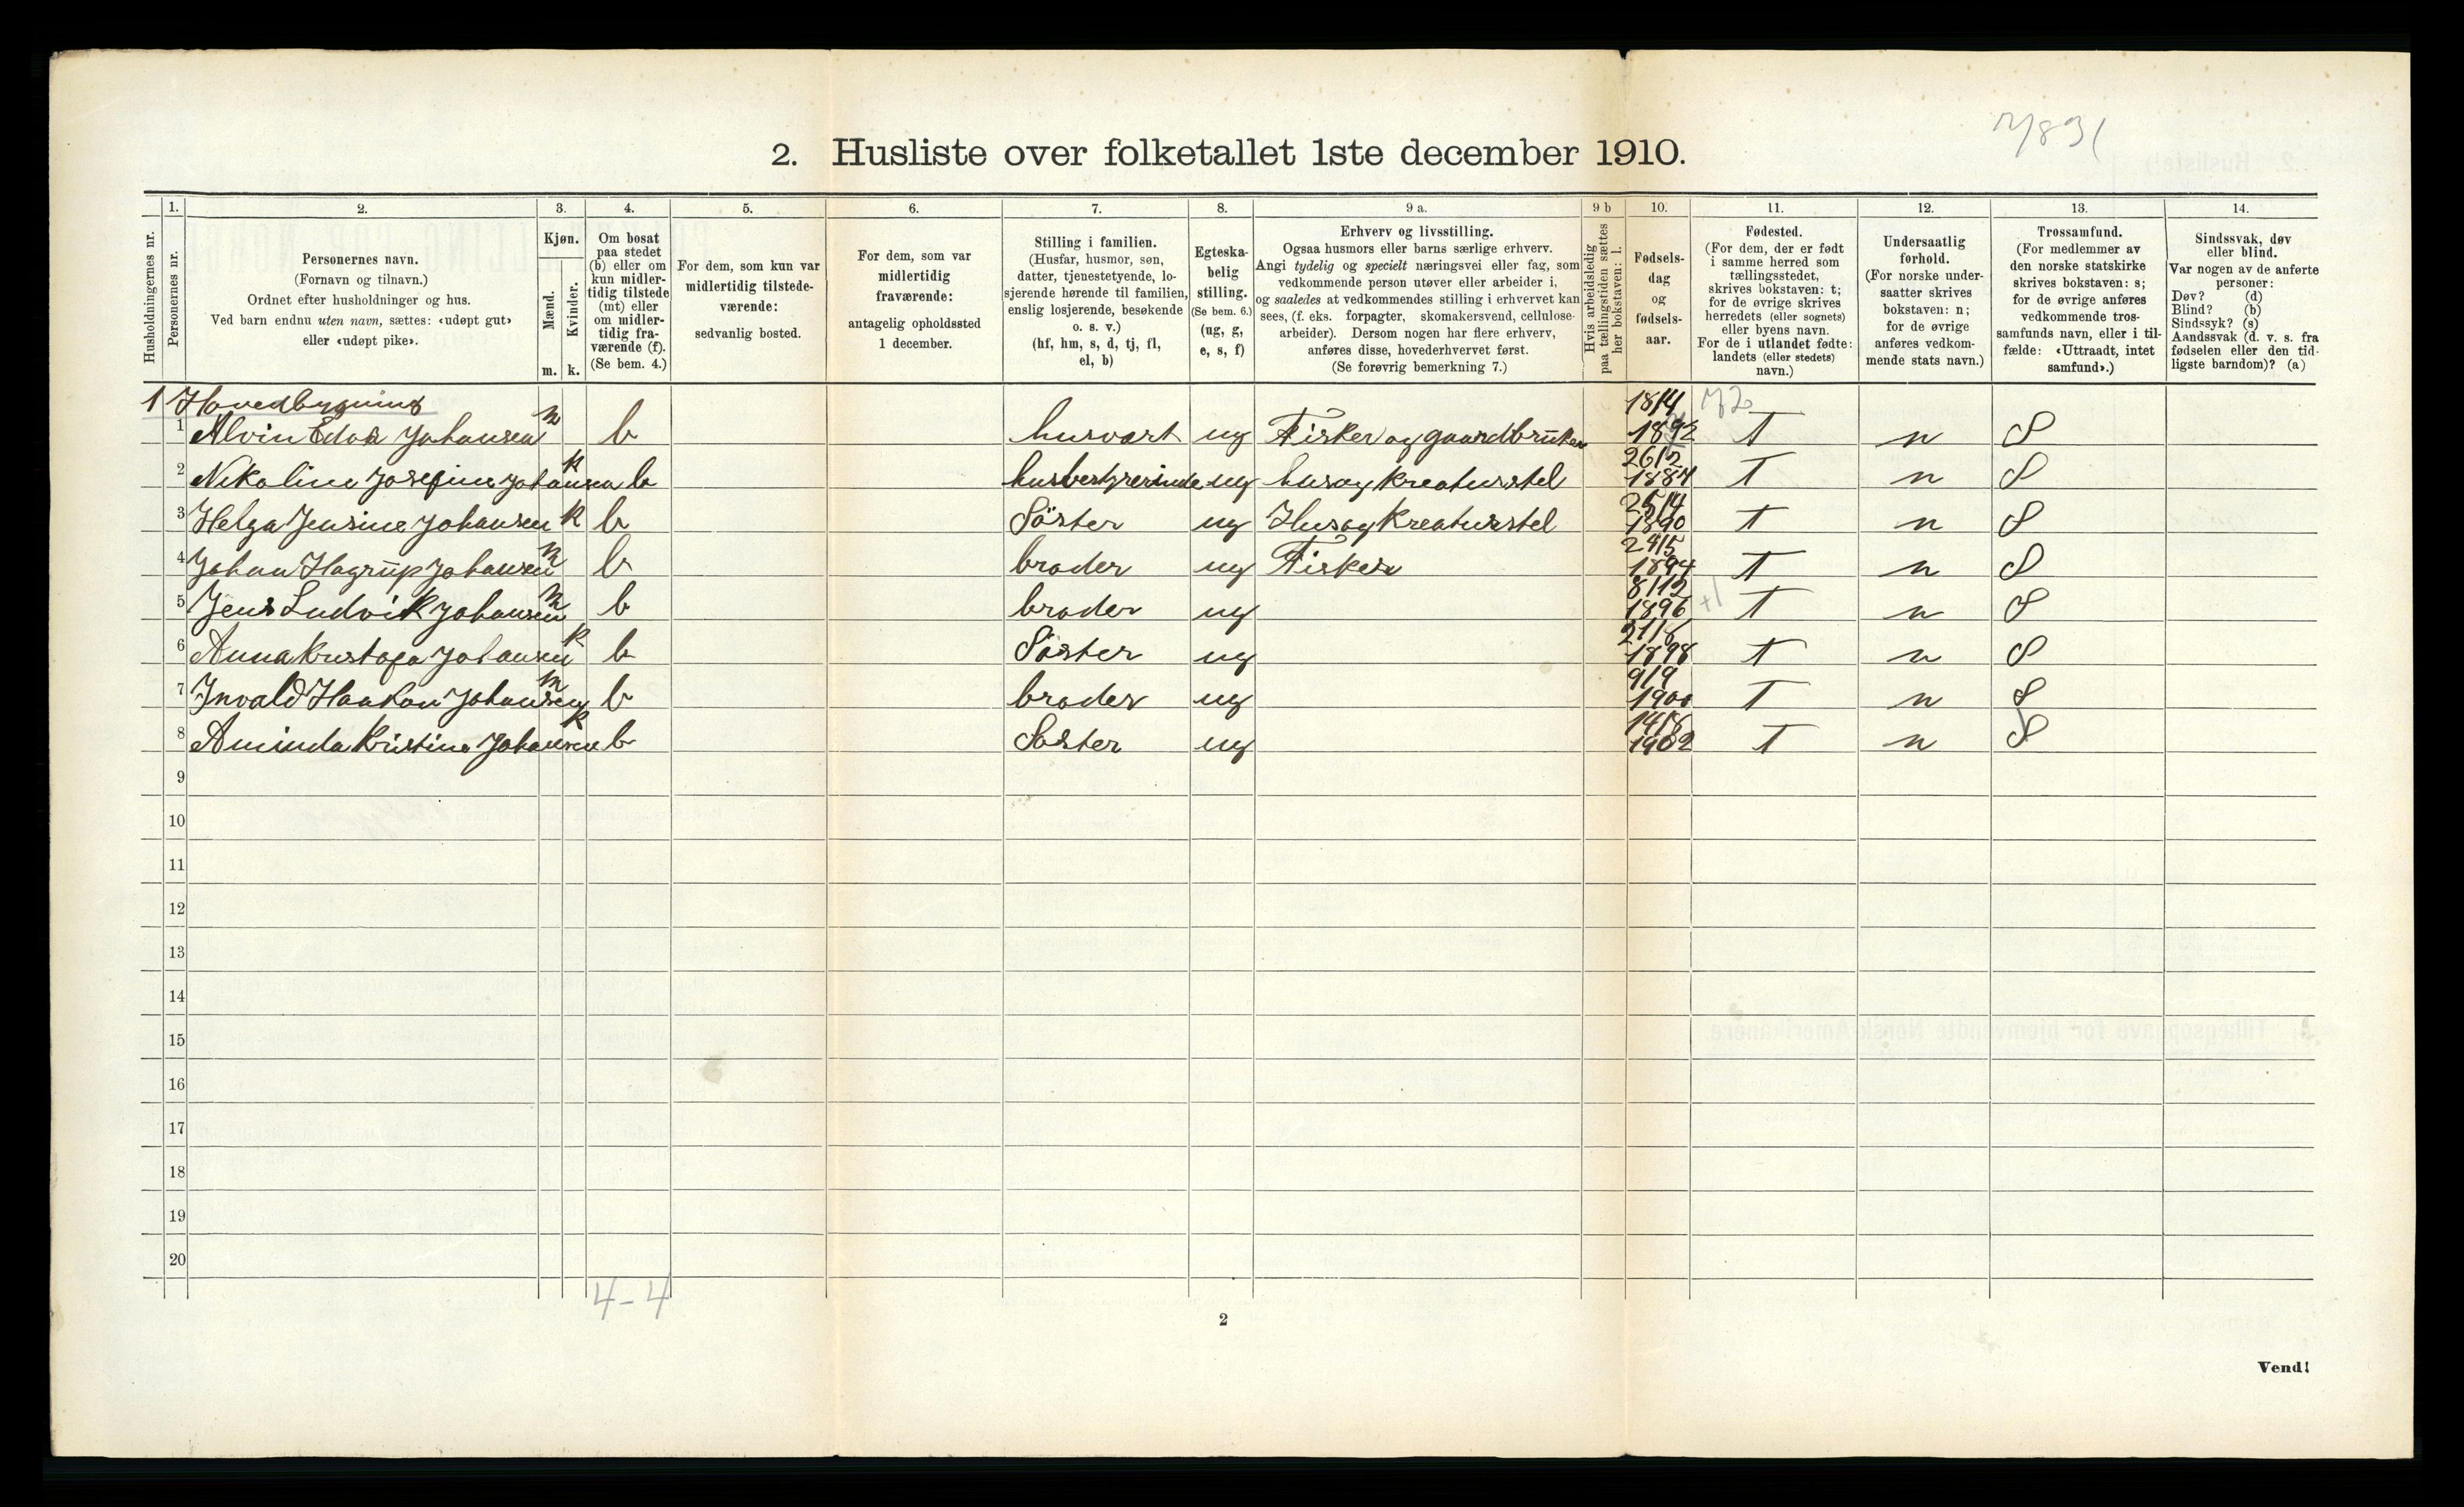 2. Husliste over folketallet 1ste december 1910.
Husholdningernes nr.
1.
Personernes nr.
2.
Personernes navn.
(Fornavn og tilnavn.)
Ordnet efter husholdninger og hus.
Ved barn endnu uten navn, sættes: «udøpt gut»
eller «udøpt pike».
3.
Kjøn.
Mænd.
Kvinder.
m. k.
4.
Om bosat
paa stedet
(b) eller om
kun midler-
tidig tilstede
(mt) eller
om midler-
tidig fra-
værende (f).
(Se bem. 4.)
5.
For dem, som kun var
midlertidig tilstede-
værende:
sedvanlig bosted.
6.
For dem, som var
midlertidig
fraværende:
antagelig opholdssted
1 december.
7.
Stilling i familien.
(Husfar, husmor, søn,
datter, tjenestetyende, lo-
sjerende hørende til familien,
enslig losjerende, besøkende
o. s. v.)
(hf, hm, s, d, tj, fl,
el, b)
8.
Egteska-
belig
stilling.
(Se bem. 6.)
(ug, g,
e, s, f)
9 a.
Erhverv og livsstilling.
Ogsaa husmors eller barns særlige erhverv.
Angi tydelig og specielt næringsvei eller fag, som
vedkommende person utøver eller arbeider i,
og saaledes at vedkommendes stilling i erhvervet kan
sees, (f. eks. forpagter, skomakersvend, cellulose-
arbeider). Dersom nogen har flere erhverv,
anføres disse, hovederhvervet først.
(Se forøvrig bemerkning 7.)
9 b
Hvis arbeidsledig
paa tællingstiden sættes
her bokstaven: l.
10.
Fødsels-
dag
og
fødsels-
aar.
11.
Fødested.
(For dem, der er født
i samme herred som
tællingsstedet,
skrives bokstaven: t;
for de øvrige skrives
herredets (eller sognets)
eller byens navn.
For de i utlandet fødte:
landets (eller stedets)
navn.)
12.
Undersaatlig
forhold.
(For norske under-
saatter skrives
bokstaven: n;
for de øvrige
anføres vedkom-
mende stats navn.)
13.
Trossamfund.
(For medlemmer av
den norske statskirke
skrives bokstaven: s;
for de øvrige anføres
vedkommende tros-
samfunds navn, eller i til-
fælde: «Uttraadt, intet
samfund».)
14.
Sindssvak, døv
eller blind.
Var nogen av de anførte
personer:
Døv? (d)
Blind? (b)
Sindssyk? (s)
Aandssvak (d. v. s. fra
fødselen eller den tid-
ligste barndom)? (a)
1 Hovedbygning
1 Alvin Johansen m b husvært ug Fisker og gaardbruker 18/4 1892 T n S
2 Nikoline Josefine Johansen k b husbestyrerinde ug hus og kreaturstel 26/2 T n S
3 Helga Jensine Johansen k b Söster ug Hus og kreaturstel 25/4 1890 T n S
4 Johan Hagrüp Johansen m b broder ug Fisker 24/5 1894 T n S
5 Jens Ludvik Johansen m b broder ug 8/12 1896 T n S
6 Anna Johansen k b Söster ug 1898 T n S
7 Invald Haakon Johansen m b broder ug 9/9 1900 T n S
8 Aminda Kristine Johansen k b Söster ug 14/8 1902 T n S
9
10
11
12
13
14
15
16
17
18
19
20
4-4
2
Vend!